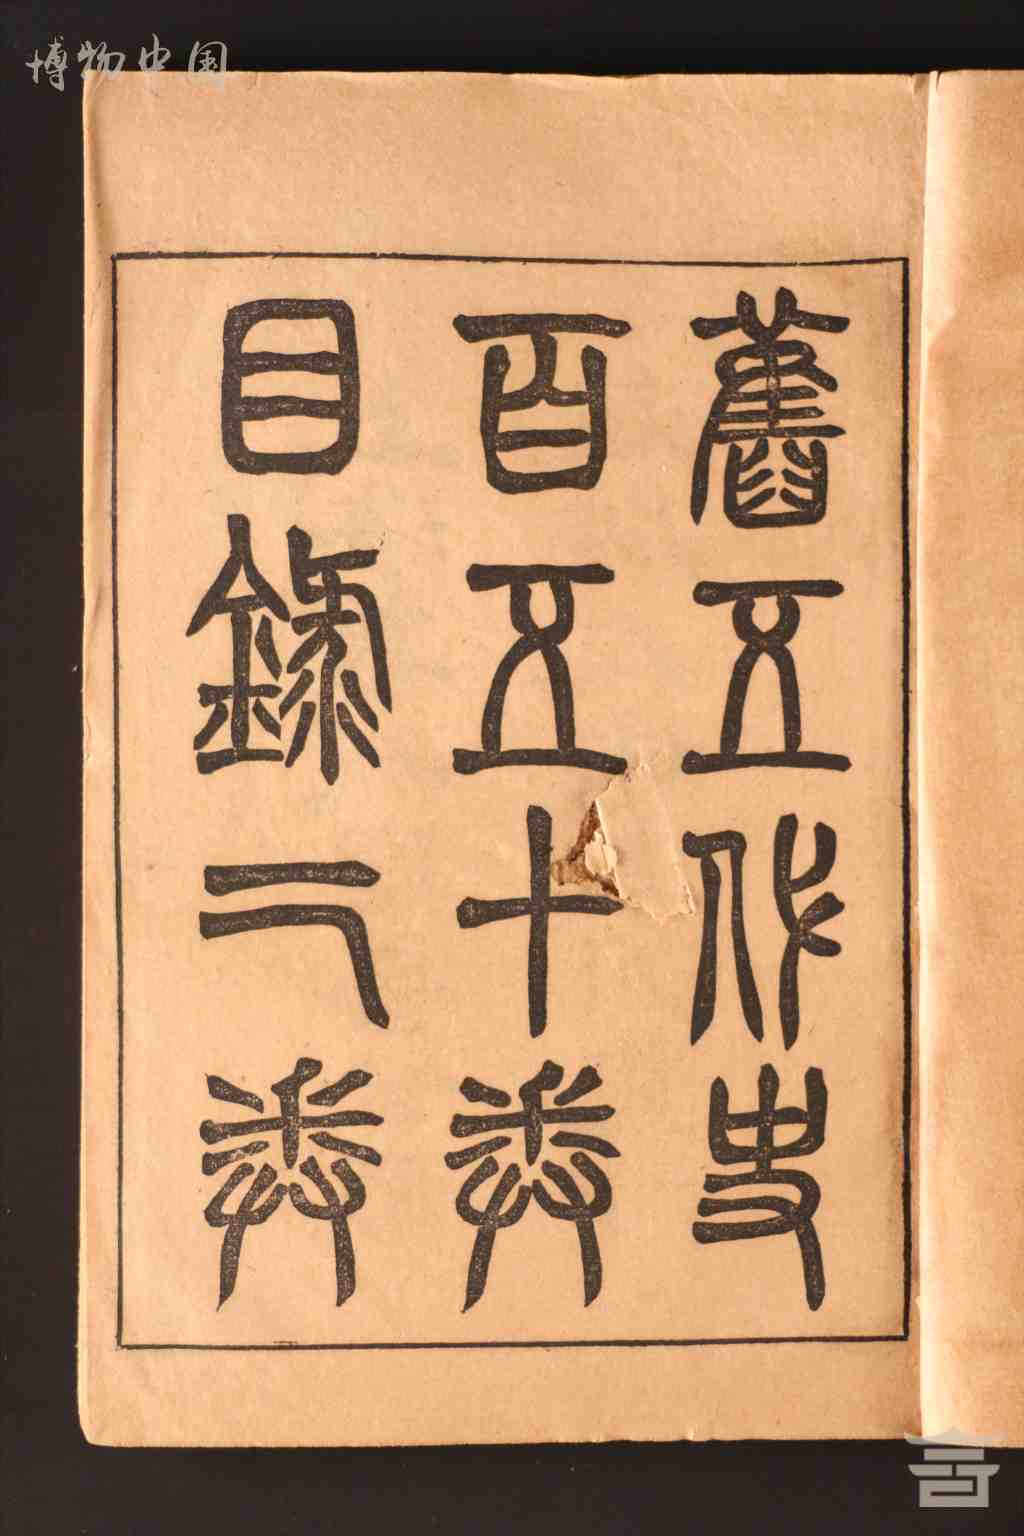 博物中国
舊五代史
百五十卷
目錄二卷